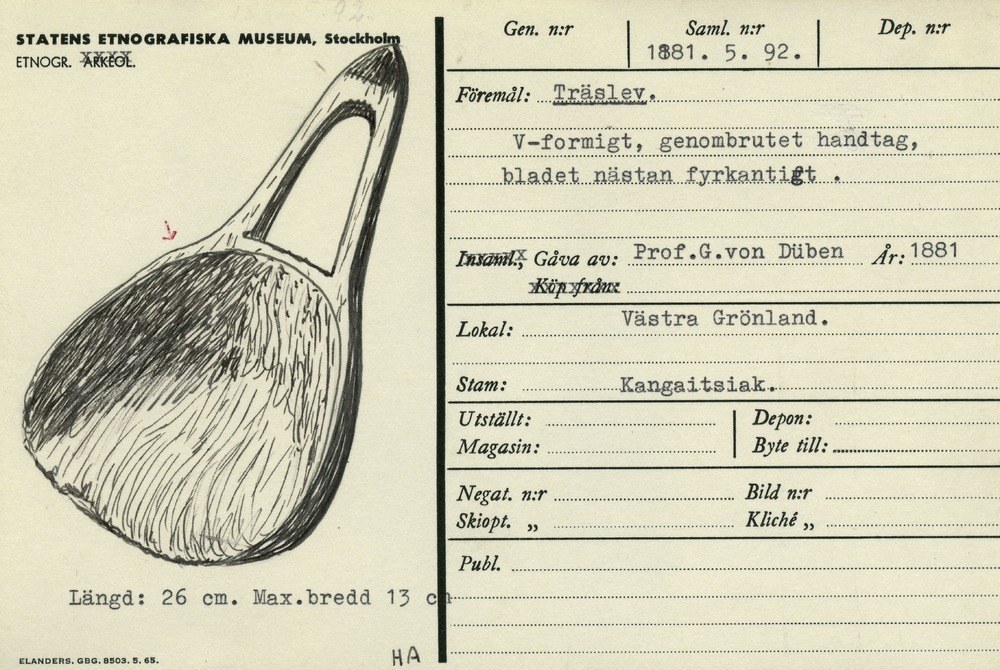 STATENS ETNOGRAFISKA MUSEUM, Stockholm
ETNOGR. ARKEOL.
Gen. n:r Saml. n:r Dep. n:r
1881. 5. 92.
Föremål: Träslev.
V-formigt, genombrutet handtag,
bladet nästan fyrkantigt .
Insaml., Gåva av: Prof.G.von Düben År: 1881
Köp från:
Lokal: Västra Grönland.
Stam: Kangaitsiak.
Utställt: Depon:
Magasin: Byte till:
Negat. n:r Bild n:r
Skiopt. „ Kliché „
Publ.
Längd: 26 cm. Max.bredd 13 cm
HA
ELANDERS. GBG. 8503. 5. 65.